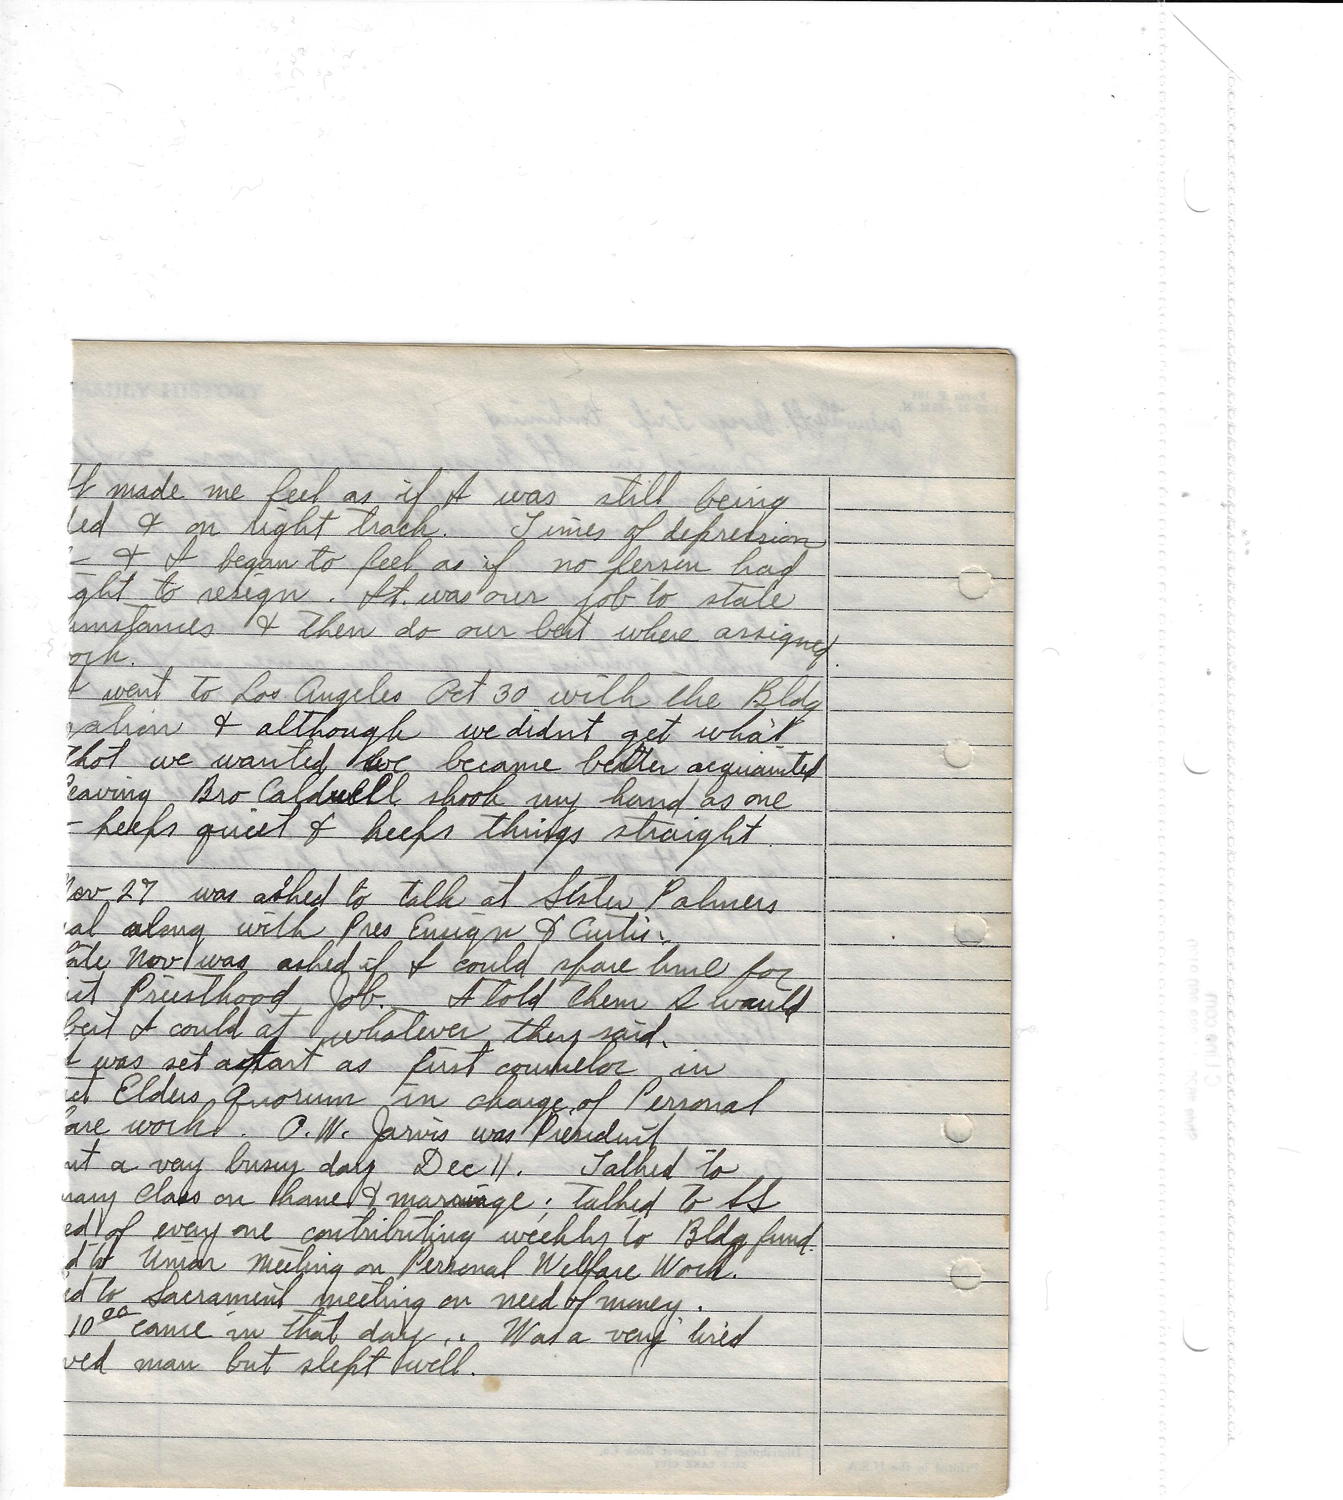 It made me feel as if I was still being
led & on right track. Times of depression
- & I began to feel as if no person had
ight to resign. It was our job to state
umstances & then do our best where assigned
ork.
I went to Los Angeles Oct 30 with the Bldg
& although we didnt get what
that we wanted we became better acquainted
Leaving Bro Caldwell shook my hand as one
- keeps quiet & keeps things straight.
Nov 27 was asked to talk at Sister Palmers
al along with Pres Ensign & Curtis.
Late Nov was asked if I could spare time for
Priesthood Job. I told them I would
best I could at whatever they said.
I was set apart as first counselor in
Elders Quorum in charge of Personal
are work. O.W. Jarvis was President
nt a very busy day Dec 11. Talked to
Class on home & marriage; talked to SS
ed of every one contributing weekly to Bldg fund.
d to Union meeting on Personal Welfare Work.
ed to Sacrament meeting on need of money.
10 00 came in that day.. Was a very tired
ved man but slept well.